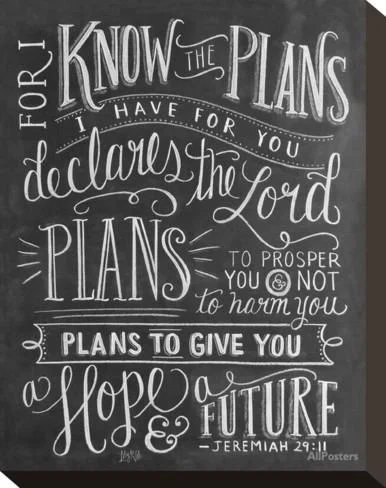 FOR I KNOW THE PLANS
I HAVE FOR YOU
declares the Lord
PLANS
TO PROSPER
YOU & NOT
to harm you
PLANS TO GIVE YOU
a Hope & a
FUTURE
–JEREMIAH 29:11
Lily & Val
AllPosters